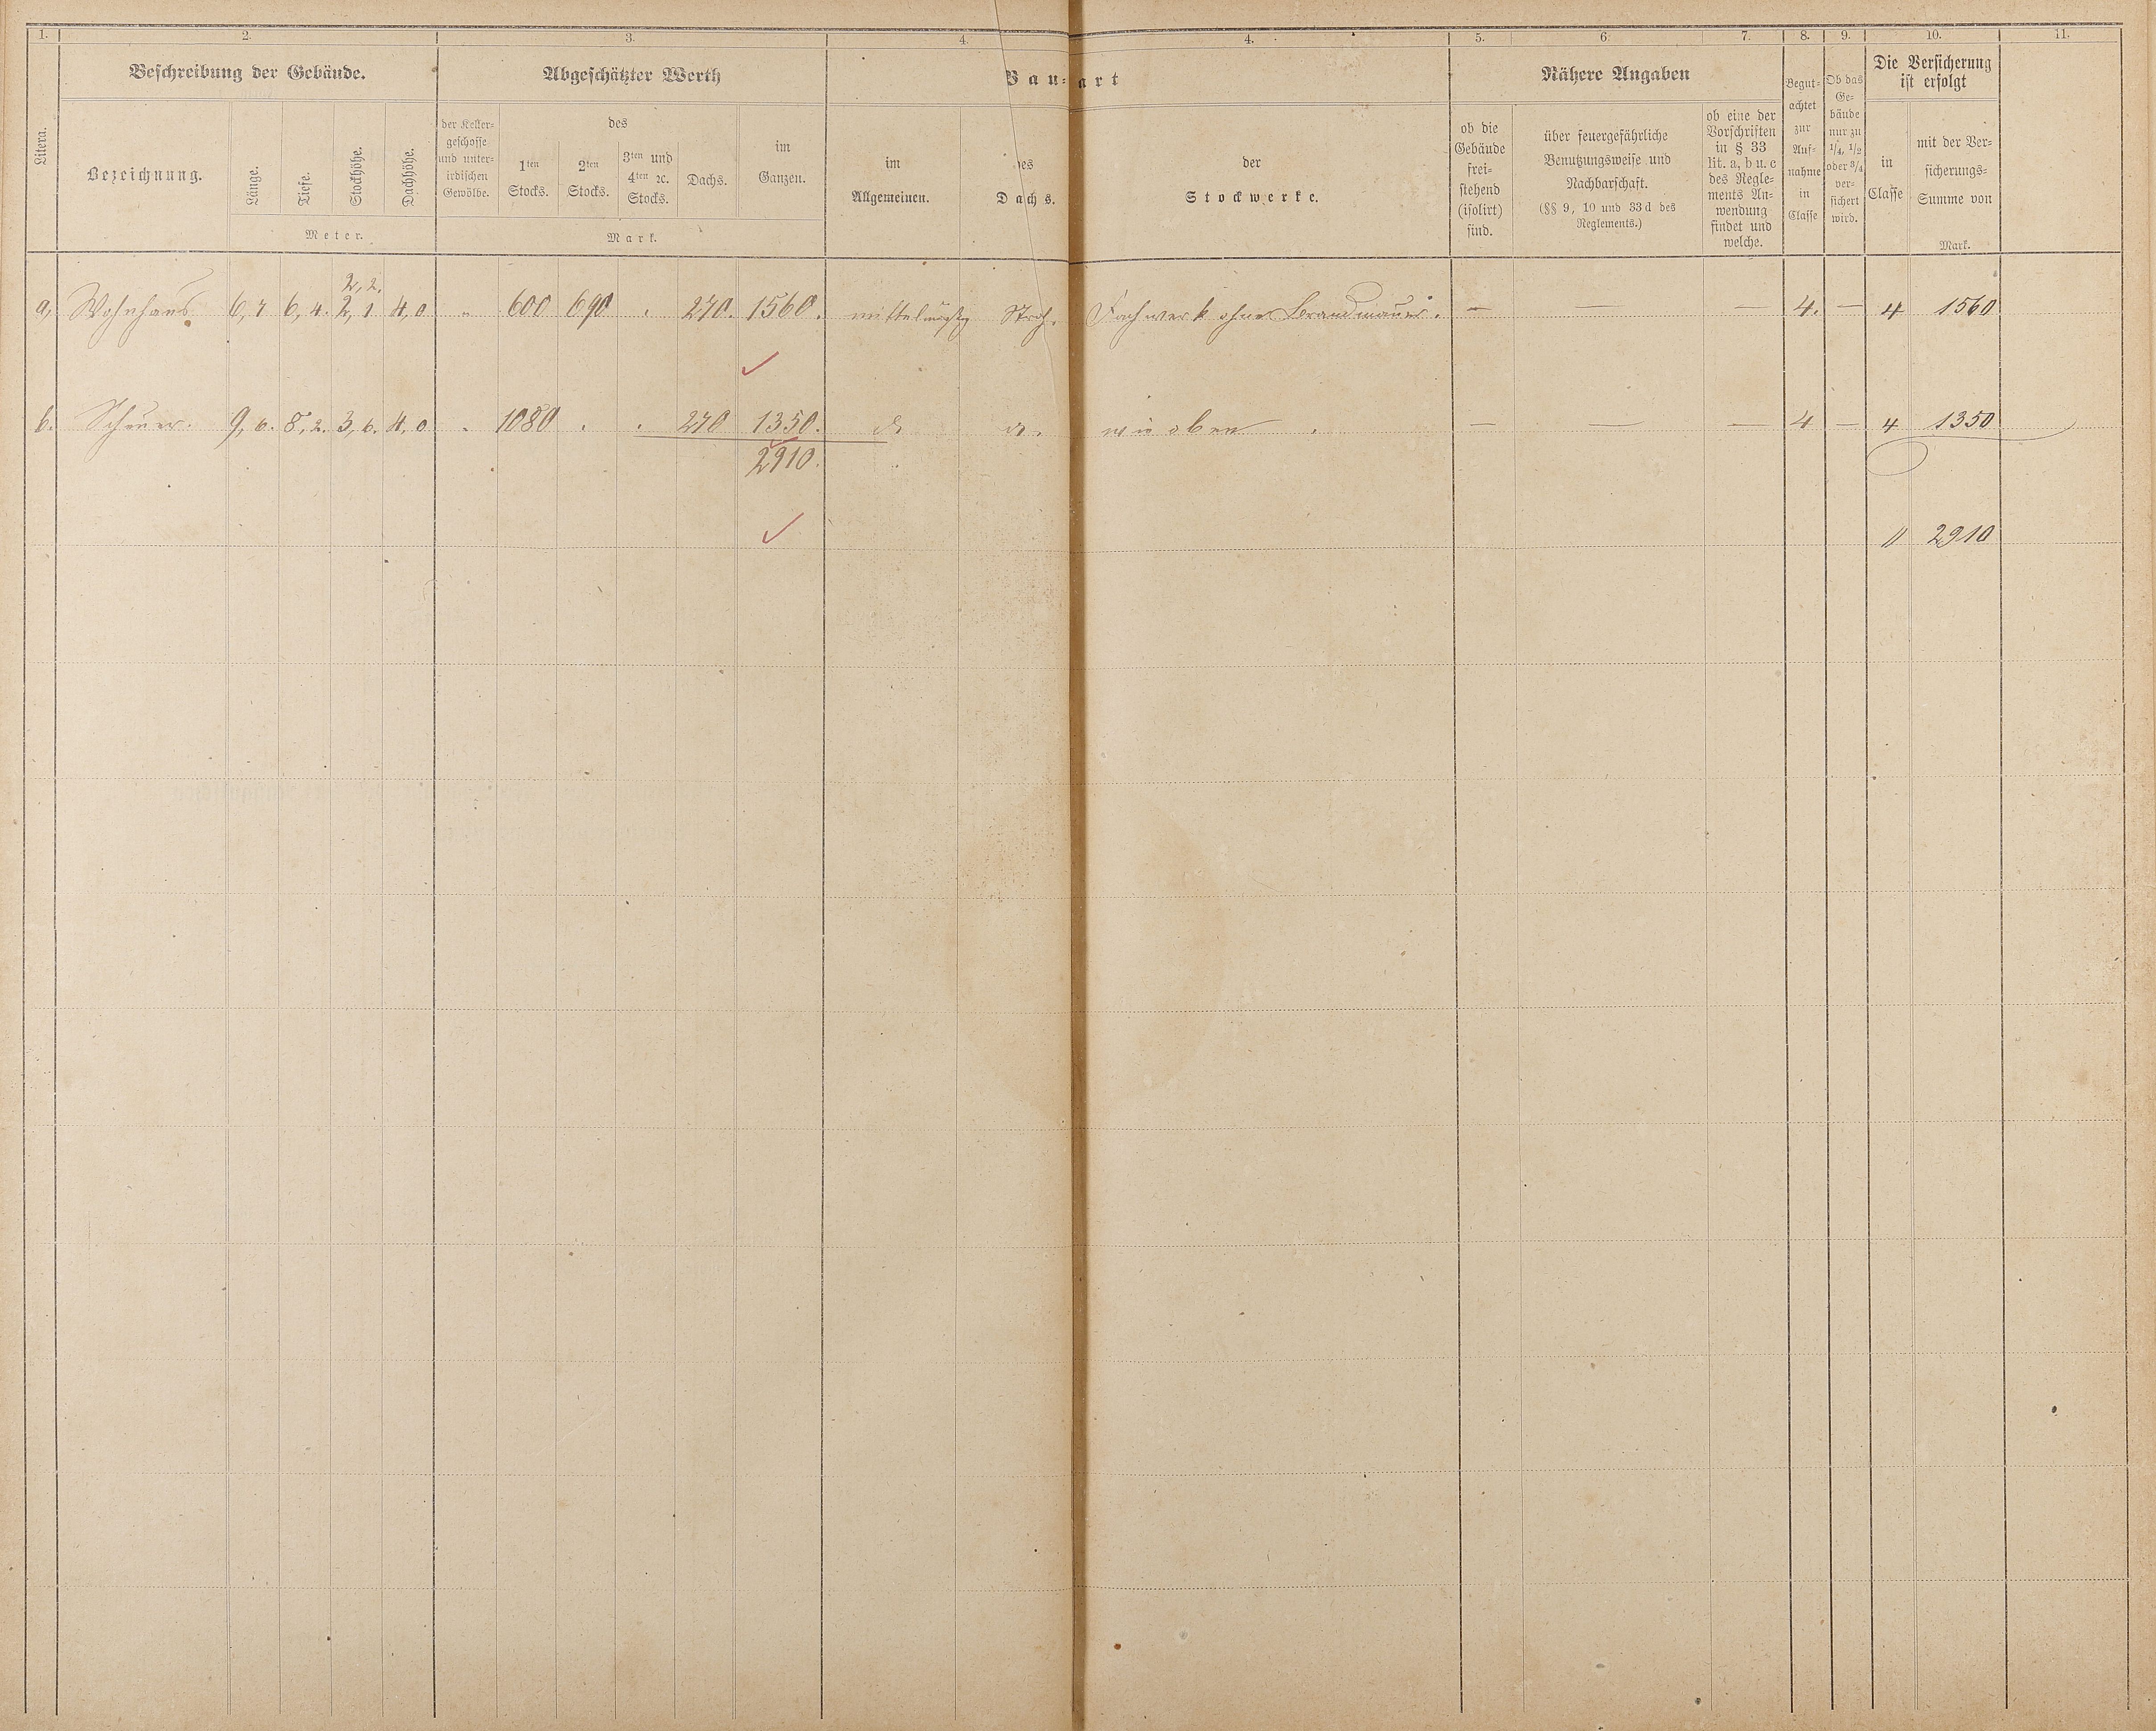 1. 2. 3. 4. 4. 5. 6. 7. 8. 9. 10. 11.
Beschreibung der Gebäude. Abgeschätzter Werth Bau-art Nähere Angaben
Die Versicherung
ist erfolgt
Litera.
Bezeichnung.
Länge.
Tiefe.
Stockhöhe.
Dachhöhe.
Meter.
der Keller-
geschosse
und unter-
irdischen
Gewölbe.
des
1ten
Stocks.
2ten
Stocks.
3ten und
4ten ꝛc.
Stocks.
Dachs.
im
Ganzen.
Mark.
im
Allgemeinen.
des
Dachs.
der
Stockwerke.
ob die
Gebäude
frei-
stehend
(isolirt)
sind.
über feuergefährliche
Benutzungsweise und
Nachbarschaft.
(§§ 9, 10 und 33 d des
Reglements.)
ob eine der
Vorschriften
in § 33
lit. a, b u. c
des Regle-
ments An-
wendung
findet und
welche.
Begut-
achtet
zur
Auf-
nahme
in
Classe
Ob das
Ge-
bäude
nur zu
1/4, 1/2
oder 3/4
ver-
sichert
wird.
in
Classe
mit der Ver-
sicherungs-
Summe von
Mark.
2,2.
a, Wohnhaus 6,7 6,4. 2,1 4,0 „ 600 690 . 270. 1560. mittelmäßig Stroh. Fachwerk ohne Brandmauer. — — — 4. — 4 1560
b. Scheuer. 9,6. 8,2. 3,6. 4,0 „ 1080 . . 270 1350. do do. wie oben . — — — 4 — 4 1350
2910.
〃 2910